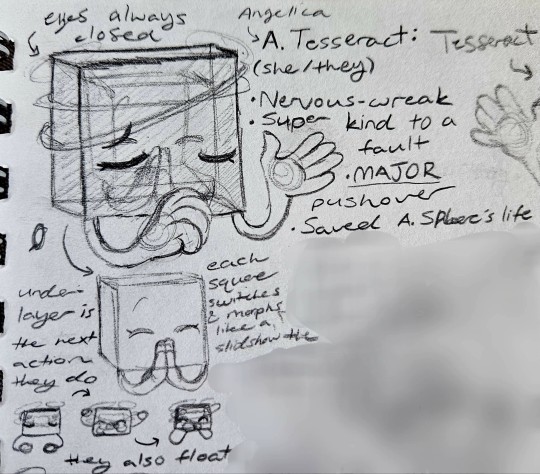 eyes always
closed
Angelica
A. Tesseract: Tesseract
(she/they)
• Nervous-wreak
• Super kind to a
fault
• MAJOR
pushover
• Saved A. Sphere's life
each
square
switches
& morphs
like a
slidshow the
under
layer is
the next
action
they do
they also float